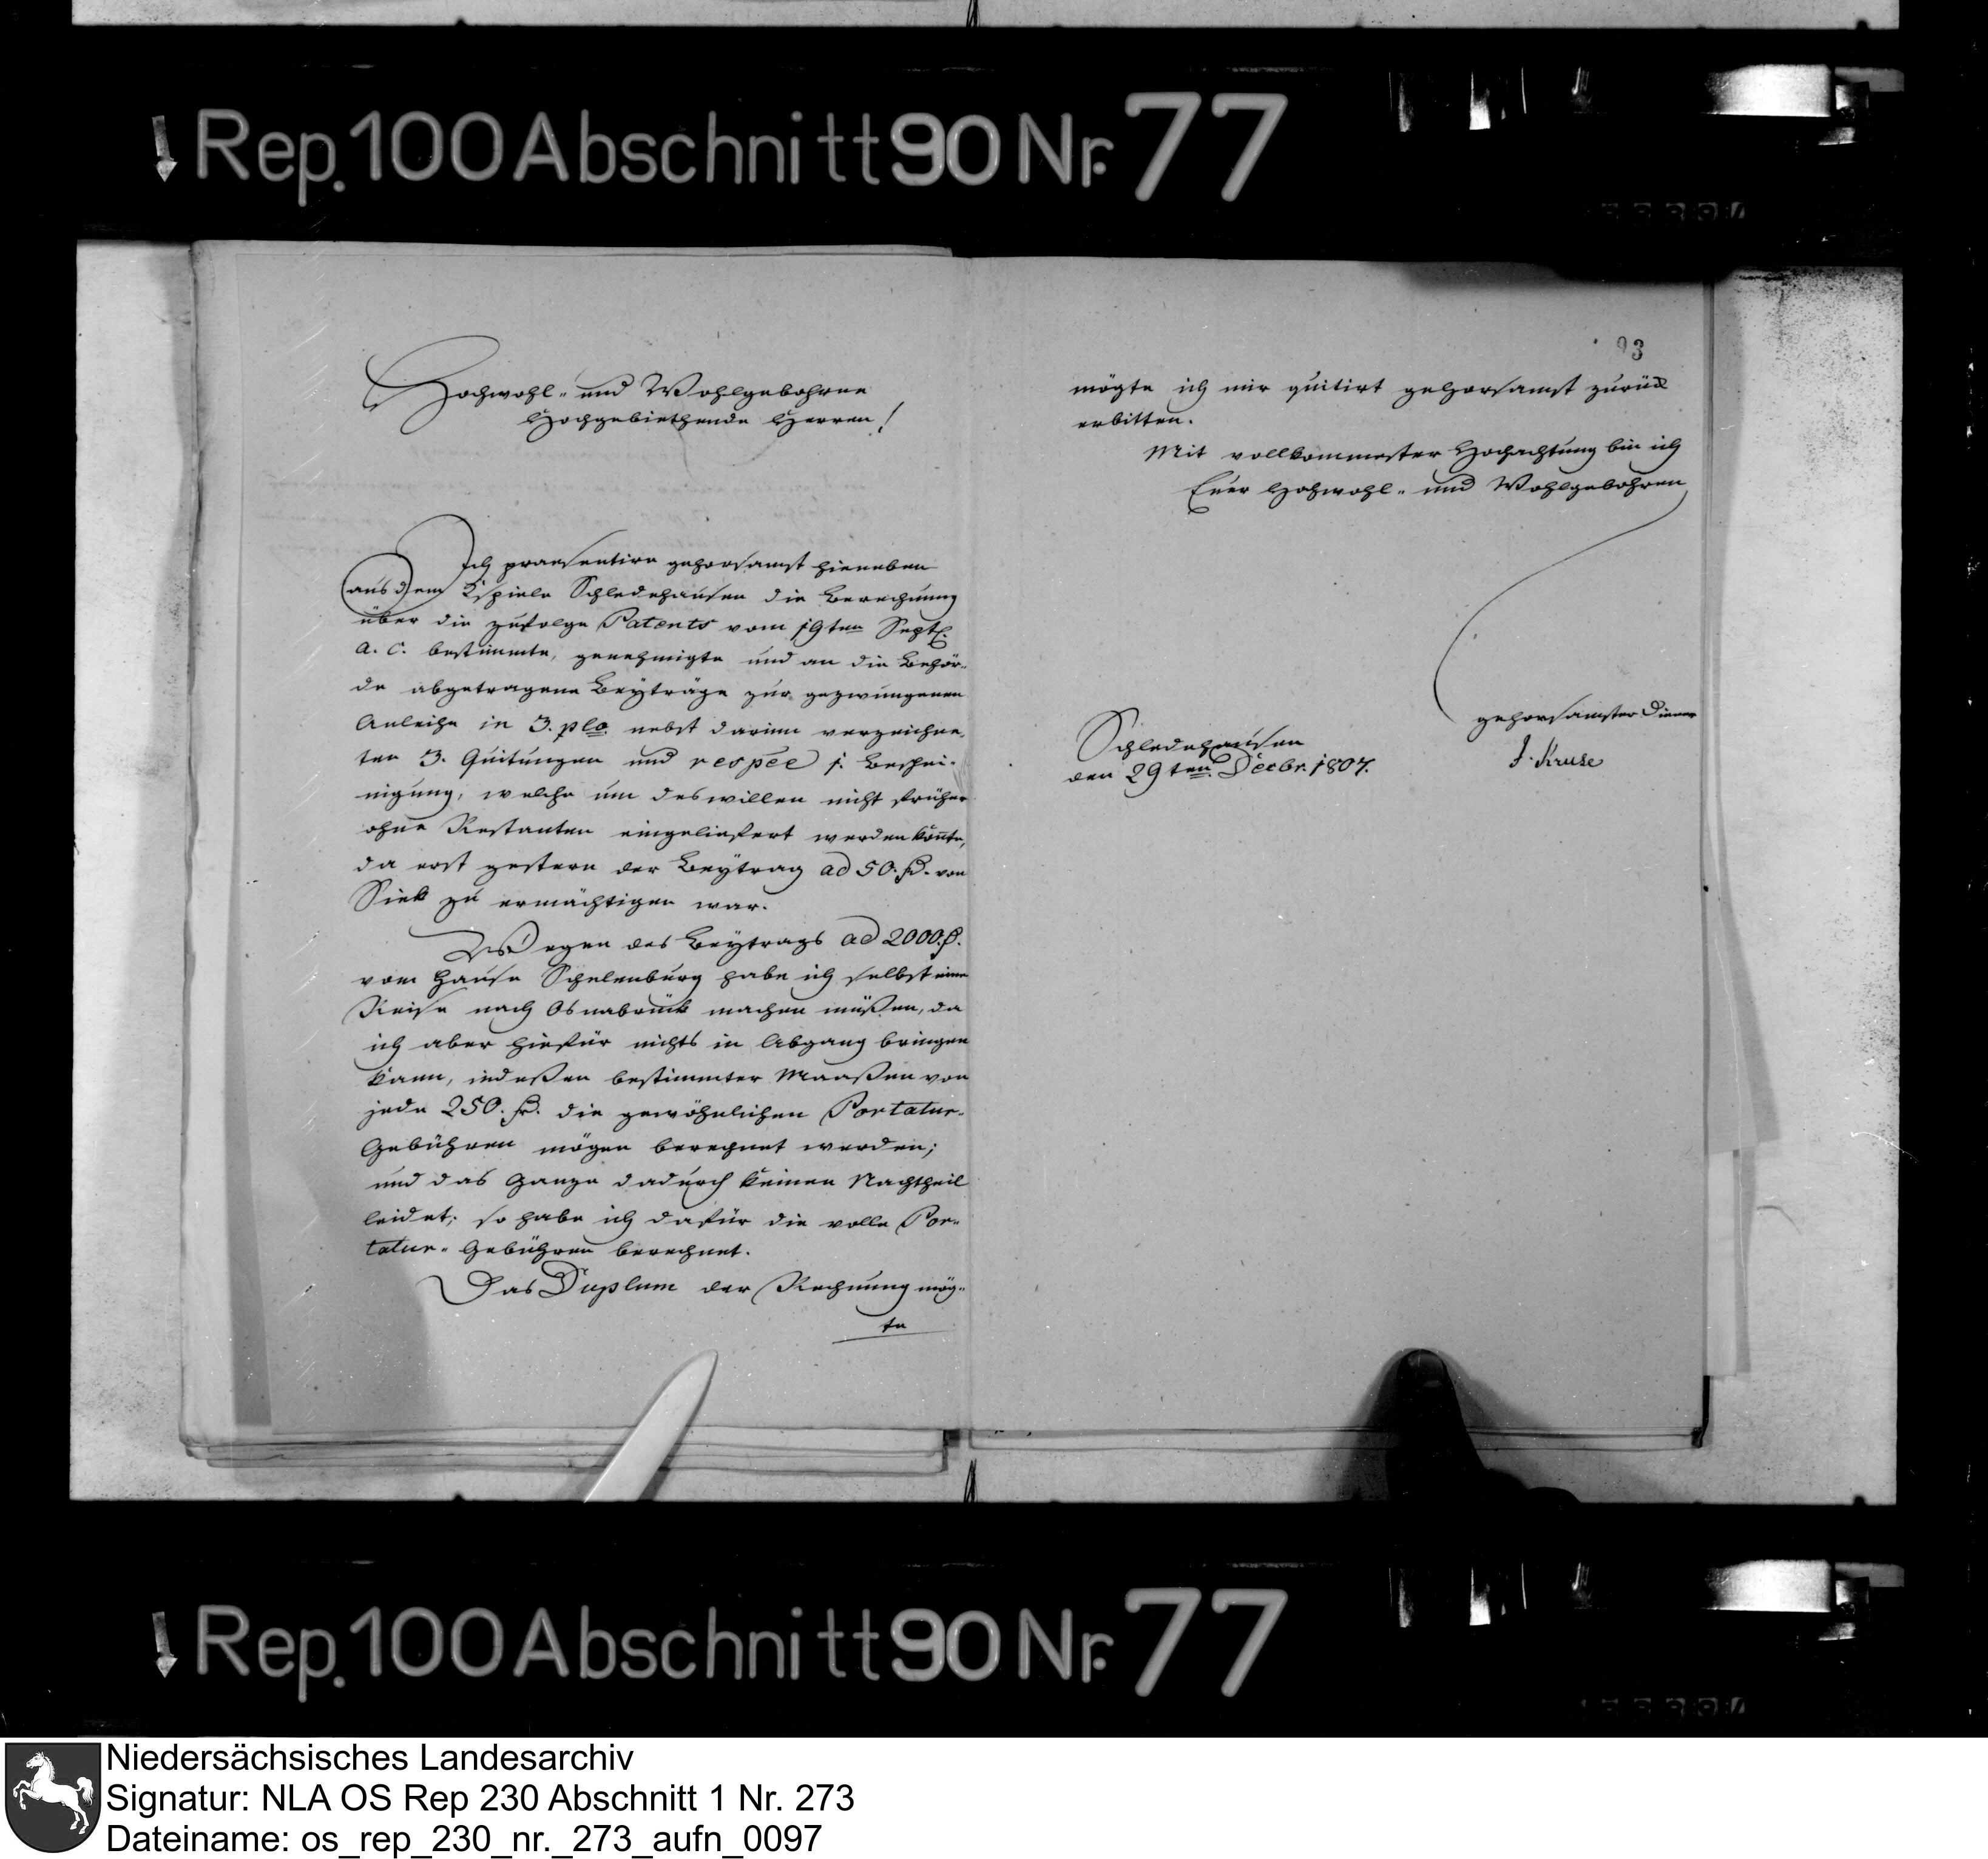 Rep. 100 Abschnitt 90 Nr. 77
Hochwohl- und Wohlgebohrne
Hochgebiethende Herren!
Ich praesentire gehorsamst hieneben
aus dem Kspiele Schledehausen die Berechnung
über die zufolge Patents vom 19ten Sept.
a. c. bestimmte, genehmigte und an die Behör-
de abgetragene Beyträge zur gezwungenen
Anleihe in 3.plo nebst darinn verzeichne-
ten 3. Quitungen und respee j. Beschei-
nigung, welche um deswillen nicht früher
ohne Restanten eingeliefert werden konnte,
da erst gestern der Beytrag ad 50. von
Siek zu ermächtigen war.
Wegen des Beytrags ad 2000.
vom Hause Schelenburg habe ich selbst eine
Reise nach Osnabrück machen müßen, da
ich aber hiefür nichts in Abgang bringen
kann, indeßen bestimmter Maaßen von
jede 250. die gewöhnlichen Portatur-
Gebühren mögen berechnet werden;
und das Ganze dadurch keinen Nachtheil
leidet; so habe ich dafür die volle Por-
tatur-Gebühren berechnet.
Das Duplum der Rechnung mög-
te
93
mögte ich mir quitirt gehorsamst zurück
erbitten.
Mit vollkommester Hochachtung bin ich
Euer Hochwohl- und Wohlgebohren
gehorsamster Diener
J. Kruse
Schledehausen
den 29ten Decbr. 1807.
Rep. 100 Abschnitt 90 Nr. 77
Niedersächsisches Landesarchiv
Signatur: NLA OS Rep 230 Abschnitt 1 Nr. 273
Dateiname: os_rep_230_nr._273_aufn_0097